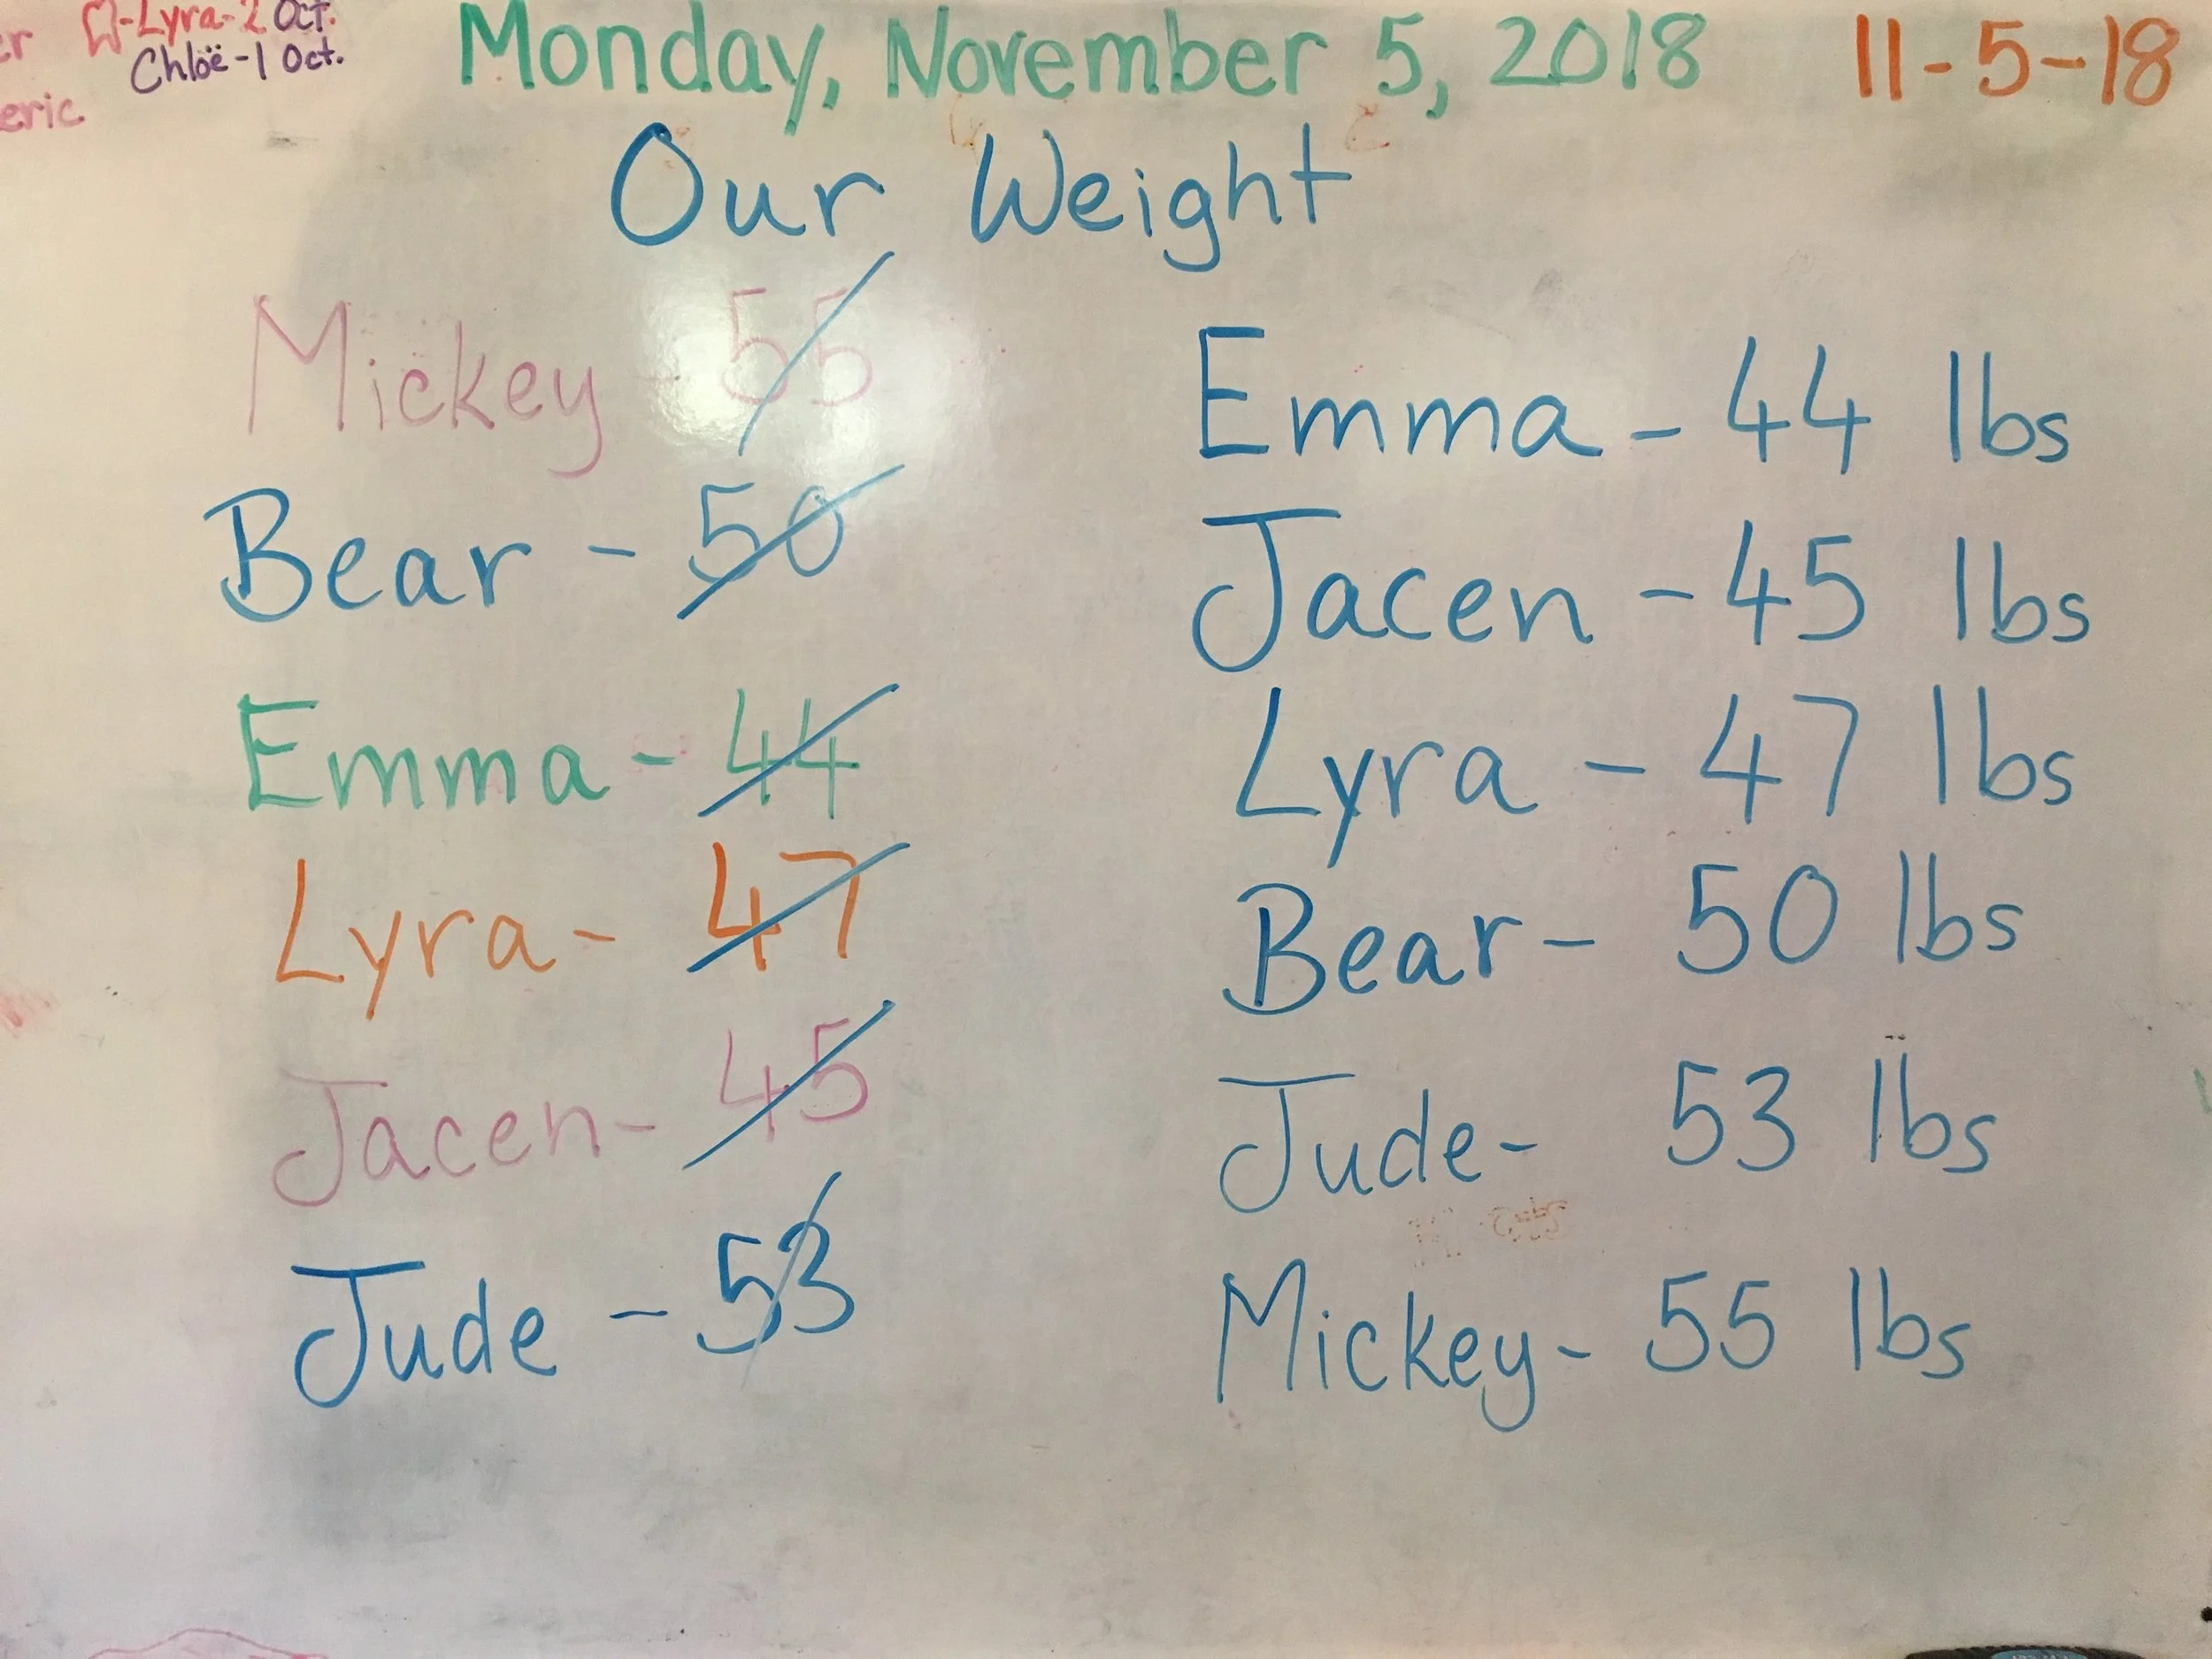 Lyra-2 Oct.
Chloë-1 Oct.
eric
Monday, November 5, 2018
11-5-18
Our Weight
Mickey - 55
Bear - 50
Emma - 44
Lyra - 47
Jacen - 45
Jude - 53
Emma - 44 lbs
Jacen - 45 lbs
Lyra - 47 lbs
Bear - 50 lbs
Jude - 53 lbs
Mickey - 55 lbs